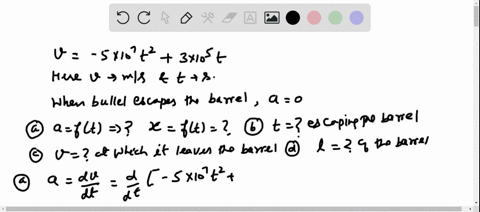 v = -5×10⁷t² + 3×10⁵t
Here v → m/s & t → s.
When bullet escapes the barrel, a = 0
ⓐ a = f(t) ⇒ ? x = f(t) = ? ⓑ t = ? escaping the barrel
ⓒ v = ? at which it leaves the barrel ⓓ l = ? of the barrel
ⓐ a = dv/dt = d/dt [-5×10⁷t² +